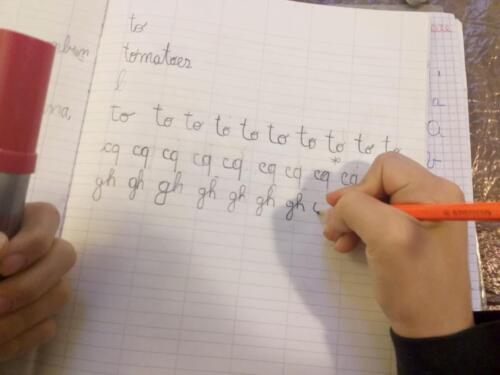 to
tomatoes
l
to to to to to to to to to to
cq cq cq cq cq cq cq cq cq
gh gh gh gh gh gh gh